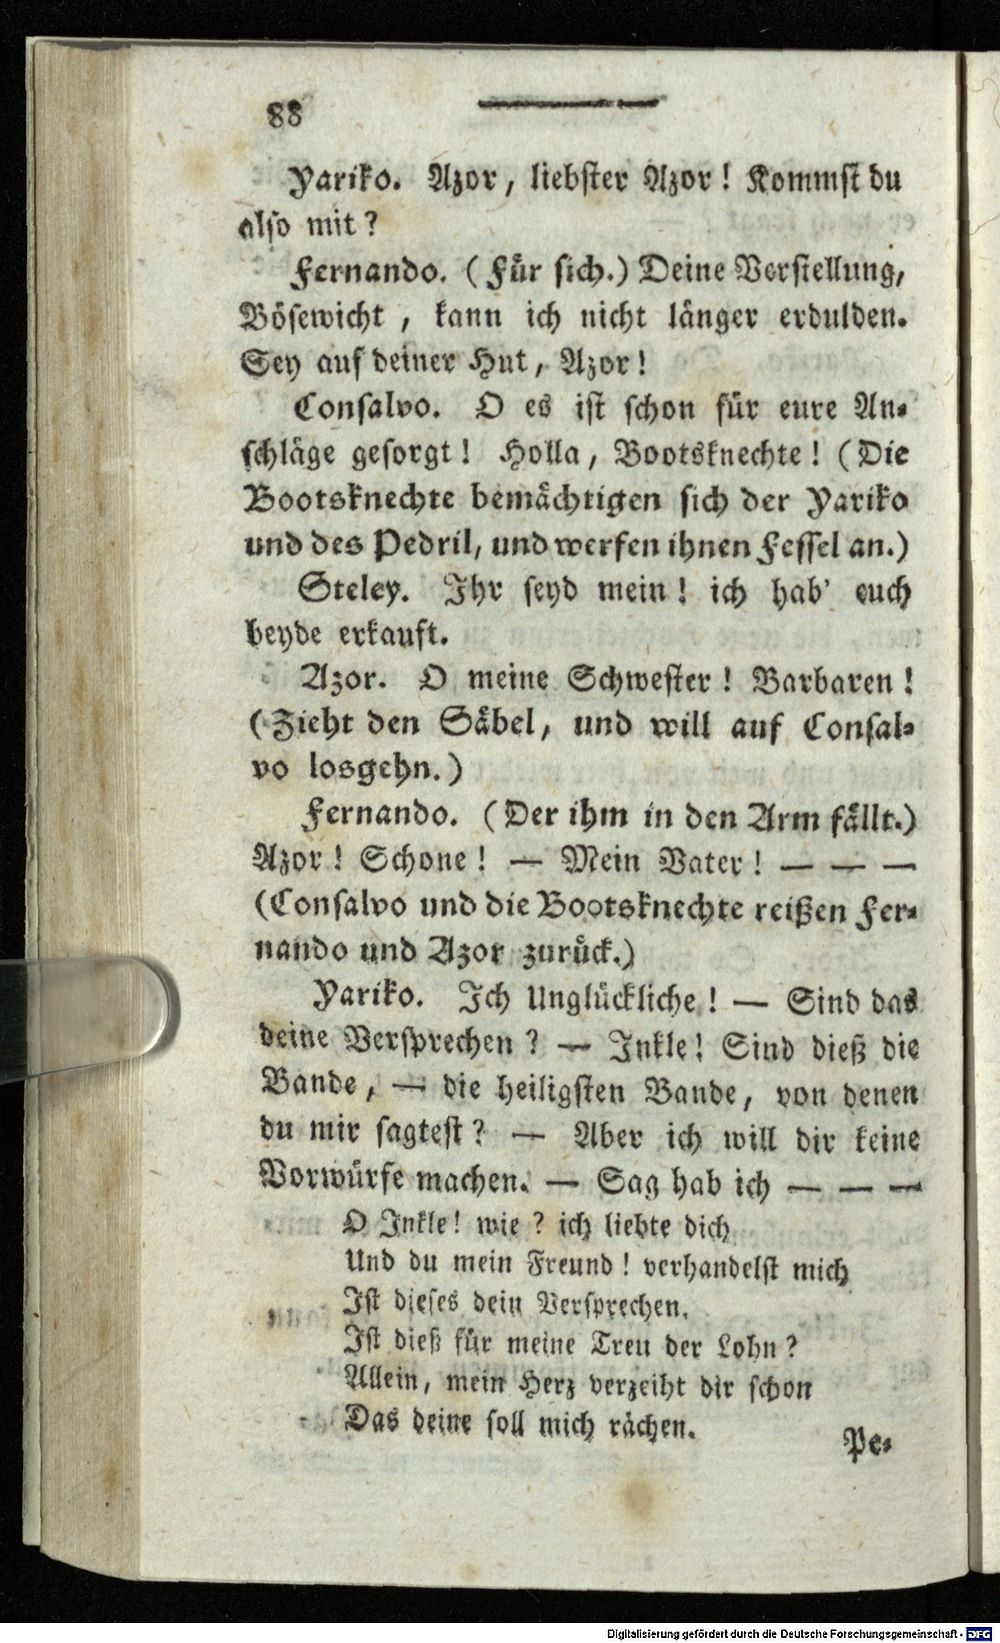 88
Yariko. Azor, liebster Azor! Kommst du
also mit?
Fernando. (Für sich.) Deine Verstellung,
Bösewicht, kann ich nicht länger erdulden.
Sey auf deiner Hut, Azor!
Consalvo. O es ist schon für eure An-
schläge gesorgt! Holla, Bootsknechte! (Die
Bootsknechte bemächtigen sich der Yariko
und des Pedril, und werfen ihnen Fessel an.)
Steley. Ihr seyd mein! ich hab' euch
beyde erkauft.
Azor. O meine Schwester! Barbaren!
(Zieht den Säbel, und will auf Consal-
vo losgehn.)
Fernando. (Der ihm in den Arm fällt.)
Azor! Schone! — Mein Vater! — — —
(Consalvo und die Bootsknechte reißen Fer-
nando und Azor zurück.)
Yariko. Ich Unglückliche! — Sind das
deine Versprechen? — Inkle! Sind dieß die
Bande, — die heiligsten Bande, von denen
du mir sagtest? — Aber ich will dir keine
Vorwürfe machen. — Sag hab ich — — —
O Inkle! wie? ich liebte dich
Und du mein Freund! verhandelst mich
Ist dieses dein Versprechen.
Ist dieß für meine Treu der Lohn?
Allein, mein Herz verzeiht dir schon
Das deine soll mich rächen.
Pe-
Digitalisierung gefördert durch die Deutsche Forschungsgemeinschaft - DFG